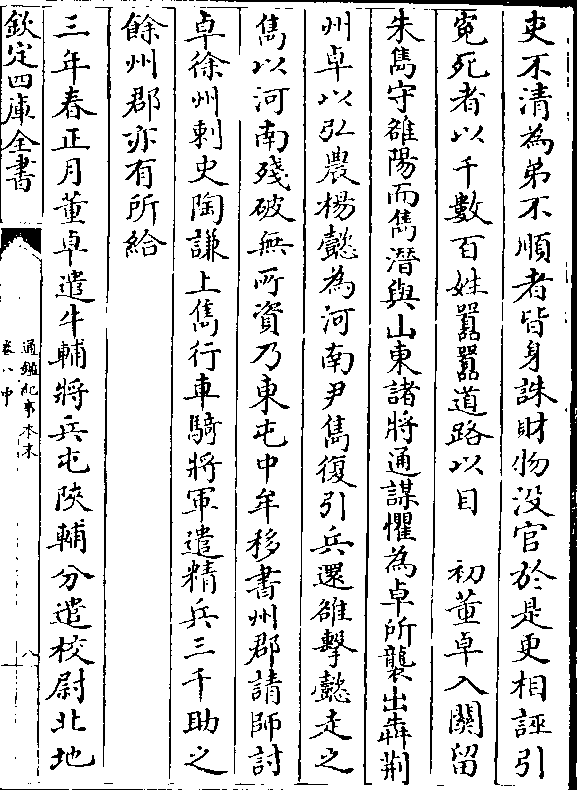 吏不清為弟不順者皆身誅財物没官於是更相誣引
寃死者以千數百姓嚻嚻道路以目　初董卓入關留
朱雋守雒陽而雋潛與山東諸將通謀懼為卓所襲出奔荆
州卓以弘農楊懿為河南尹雋復引兵還雒擊懿走之
雋以河南殘破無所資乃東屯中牟移書州郡請師討
卓徐州刺史陶謙上雋行車騎將軍遣精兵三千助之
餘州郡亦有所給
三年春正月董卓遣牛輔將兵屯陜輔分遣校尉北地
欽定四庫全書
通鑑紀事本末
卷八中
八